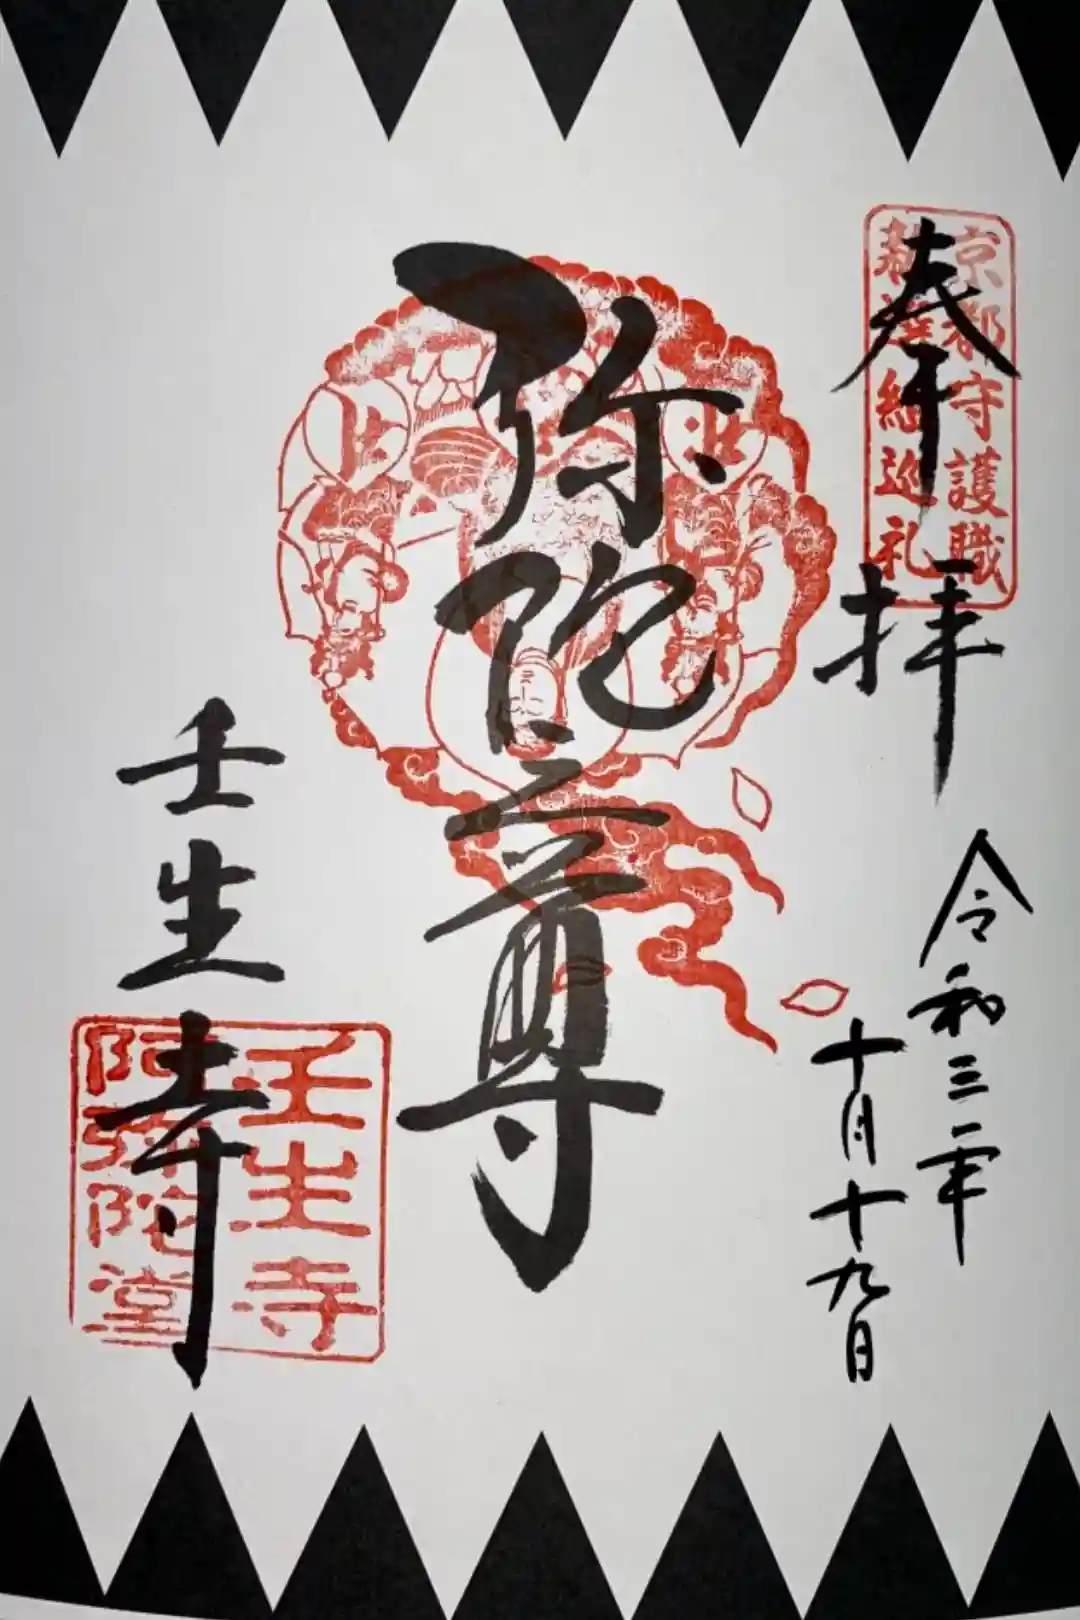 奉拝
京都守護職
新選組巡礼
令和三年
十月十九日
弥陀三尊
壬生寺
壬生寺
阿弥陀堂